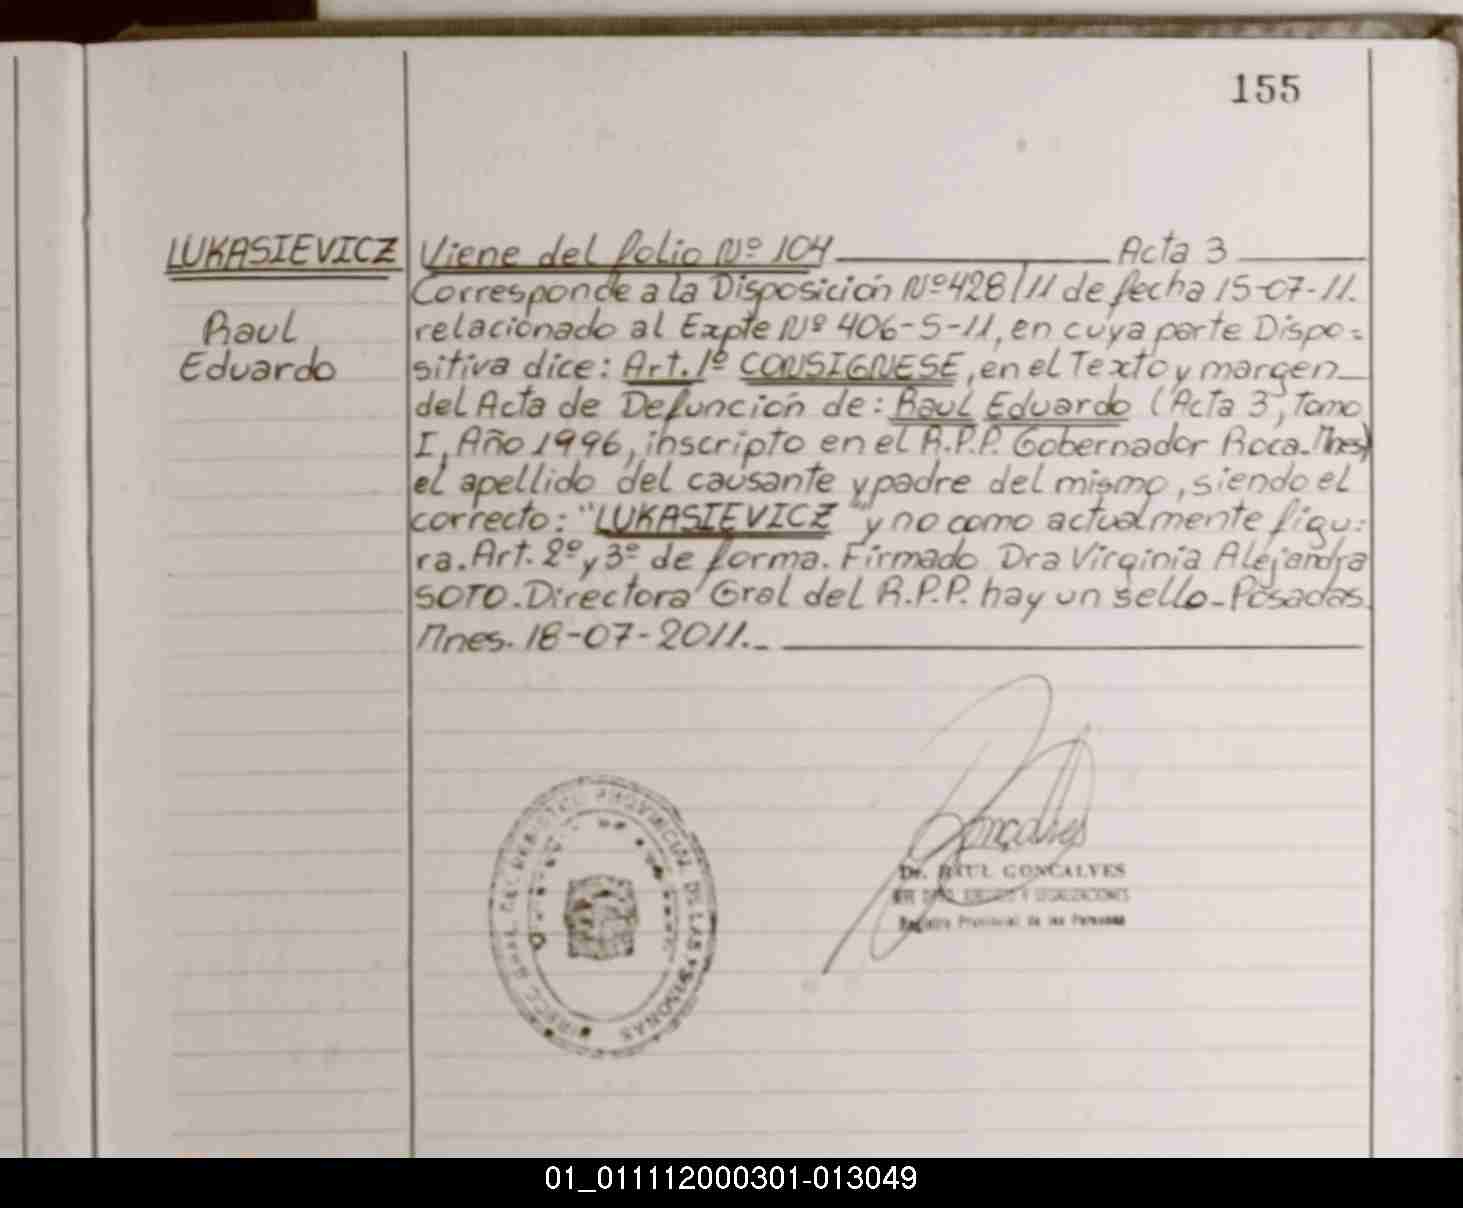 155
LUKASIEVICZ
Raul
Eduardo
Viene del folio Nº 104 Acta 3
Corresponde a la Disposición Nº428/11 de fecha 15-07-11.
relacionado al Expte Nº 406-S-11, en cuya parte Dispo=
sitiva dice: Art. 1º CONSIGNESE, en el Texto y margen
del Acta de Defunción de: Raul Eduardo (Acta 3, Tomo
I, Año 1996, inscripto en el R.P.P. Gobernador Roca. Mnes)
el apellido del causante y padre del mismo, siendo el
correcto: "LUKASIEVICZ" y no como actualmente figu=
ra. Art. 2º y 3º de forma. Firmado Dra Virginia Alejandra
SOTO. Directora Gral del R.P.P. hay un sello_ Posadas.
Mnes. 18-07-2011._
PROVINCIAL DE LAS PERSONAS
Goncalves
Dr. RAUL GONCALVES
Y LEGALIZACIONES
Registro Provincial de las Personas
01_011112000301-013049